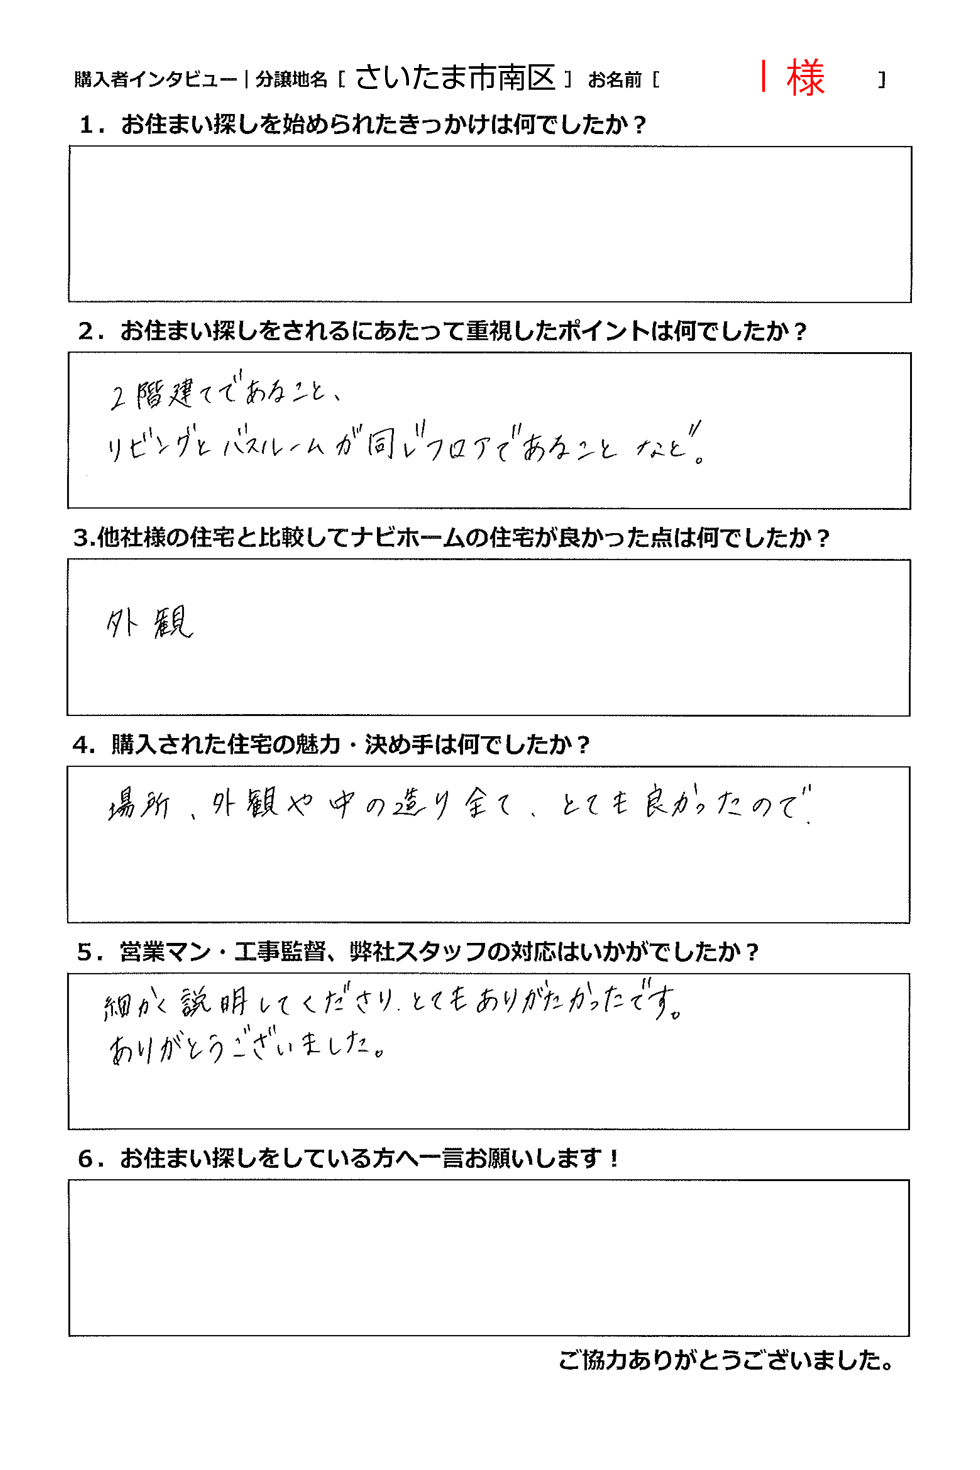 購入者インタビュー｜分譲地名［ さいたま市南区 ］ お名前［ I 様 ］
１．お住まい探しを始められたきっかけは何でしたか？
２．お住まい探しをされるにあたって重視したポイントは何でしたか？
2階建てであること、
リビングとバスルームが同じフロアであること など。
3.他社様の住宅と比較してナビホームの住宅が良かった点は何でしたか？
外観
4．購入された住宅の魅力・決め手は何でしたか？
場所、外観や中の造り全て、とても良かったので.
５．営業マン・工事監督、弊社スタッフの対応はいかがでしたか？
細かく説明してくださり、とてもありがたかったです。
ありがとうございました。
６．お住まい探しをしている方へ一言お願いします！
ご協力ありがとうございました。